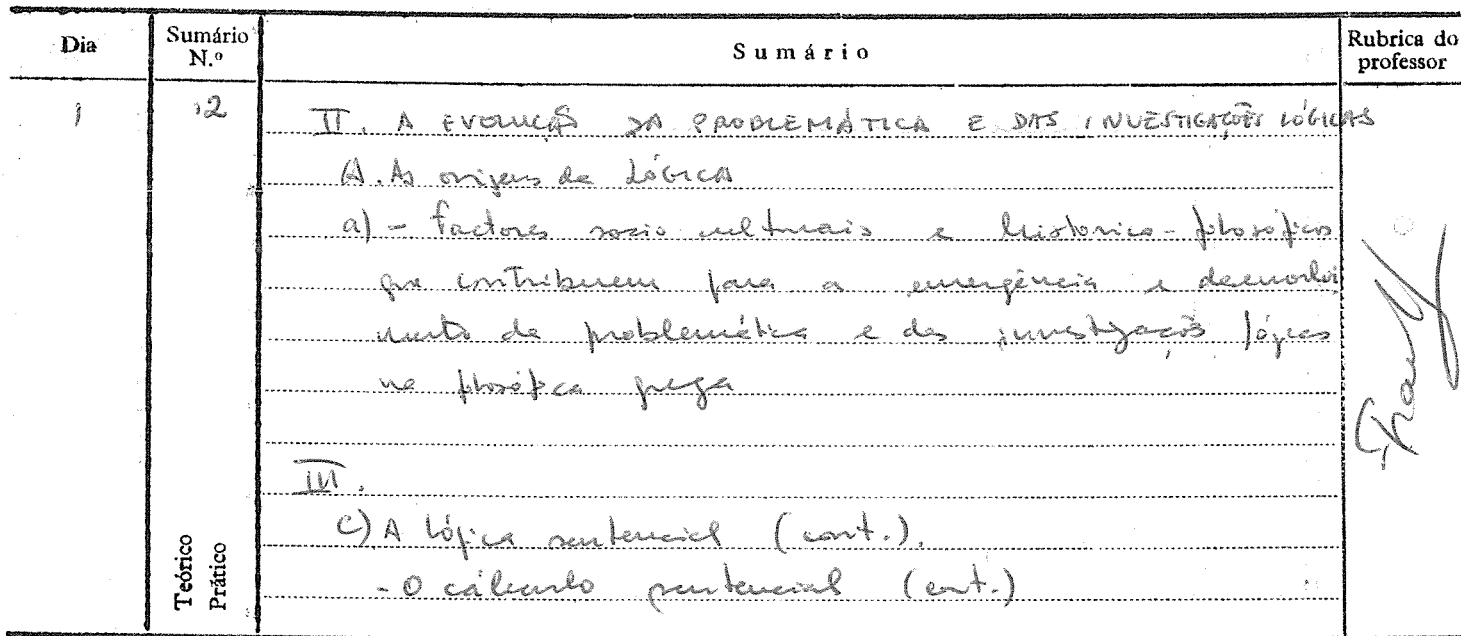 Dia
Sumário N.º
Sumário
Rubrica do professor
1
12
II. A EVOLUÇÃO DA PROBLEMÁTICA E DAS INVESTIGAÇÕES LÓGICAS
A. As origens da LÓGICA
a) - factores socio culturais e historico-filosóficos
que contribuem para a emergência e desenvolvi
mento da problemática e das investigações lógicas
na filosófica grega
III.
C) A lógica sentencial (cont.).
- O cálculo sentencial (cont.)
Teórico
Prático